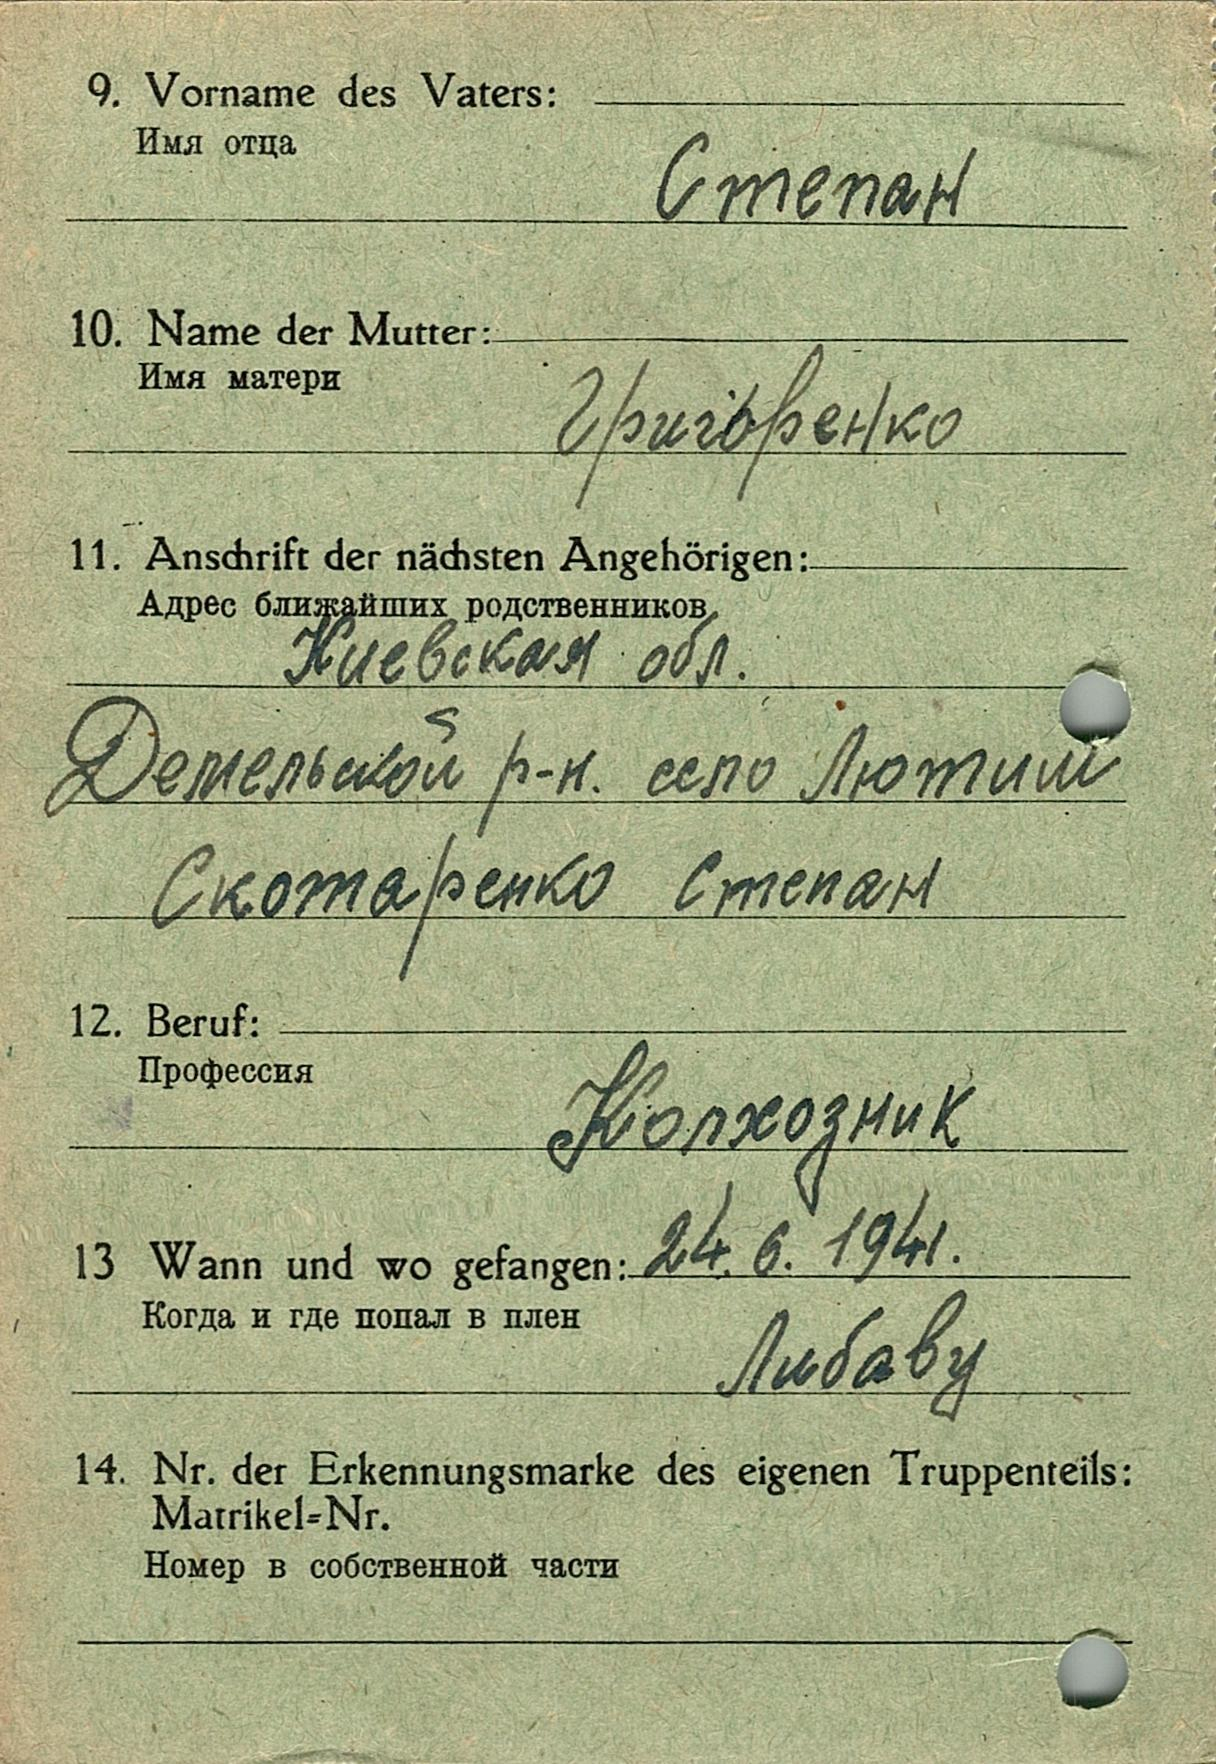 9. Vorname des Vaters:
Имя отца
Степан
10. Name der Mutter:
Имя матери
Григоренко
11. Anschrift der nächsten Angehörigen:
Адрес ближайших родственников
Киевская обл.
р-н. село Лютиш
Скотаренко Степан
12. Beruf:
Профессия
Колхозник
13 Wann und wo gefangen: 24. 6. 1941.
Когда и где попал в плен
Либаву
14. Nr. der Erkennungsmarke des eigenen Truppenteils:
Matrikel=Nr.
Номер в собственной части